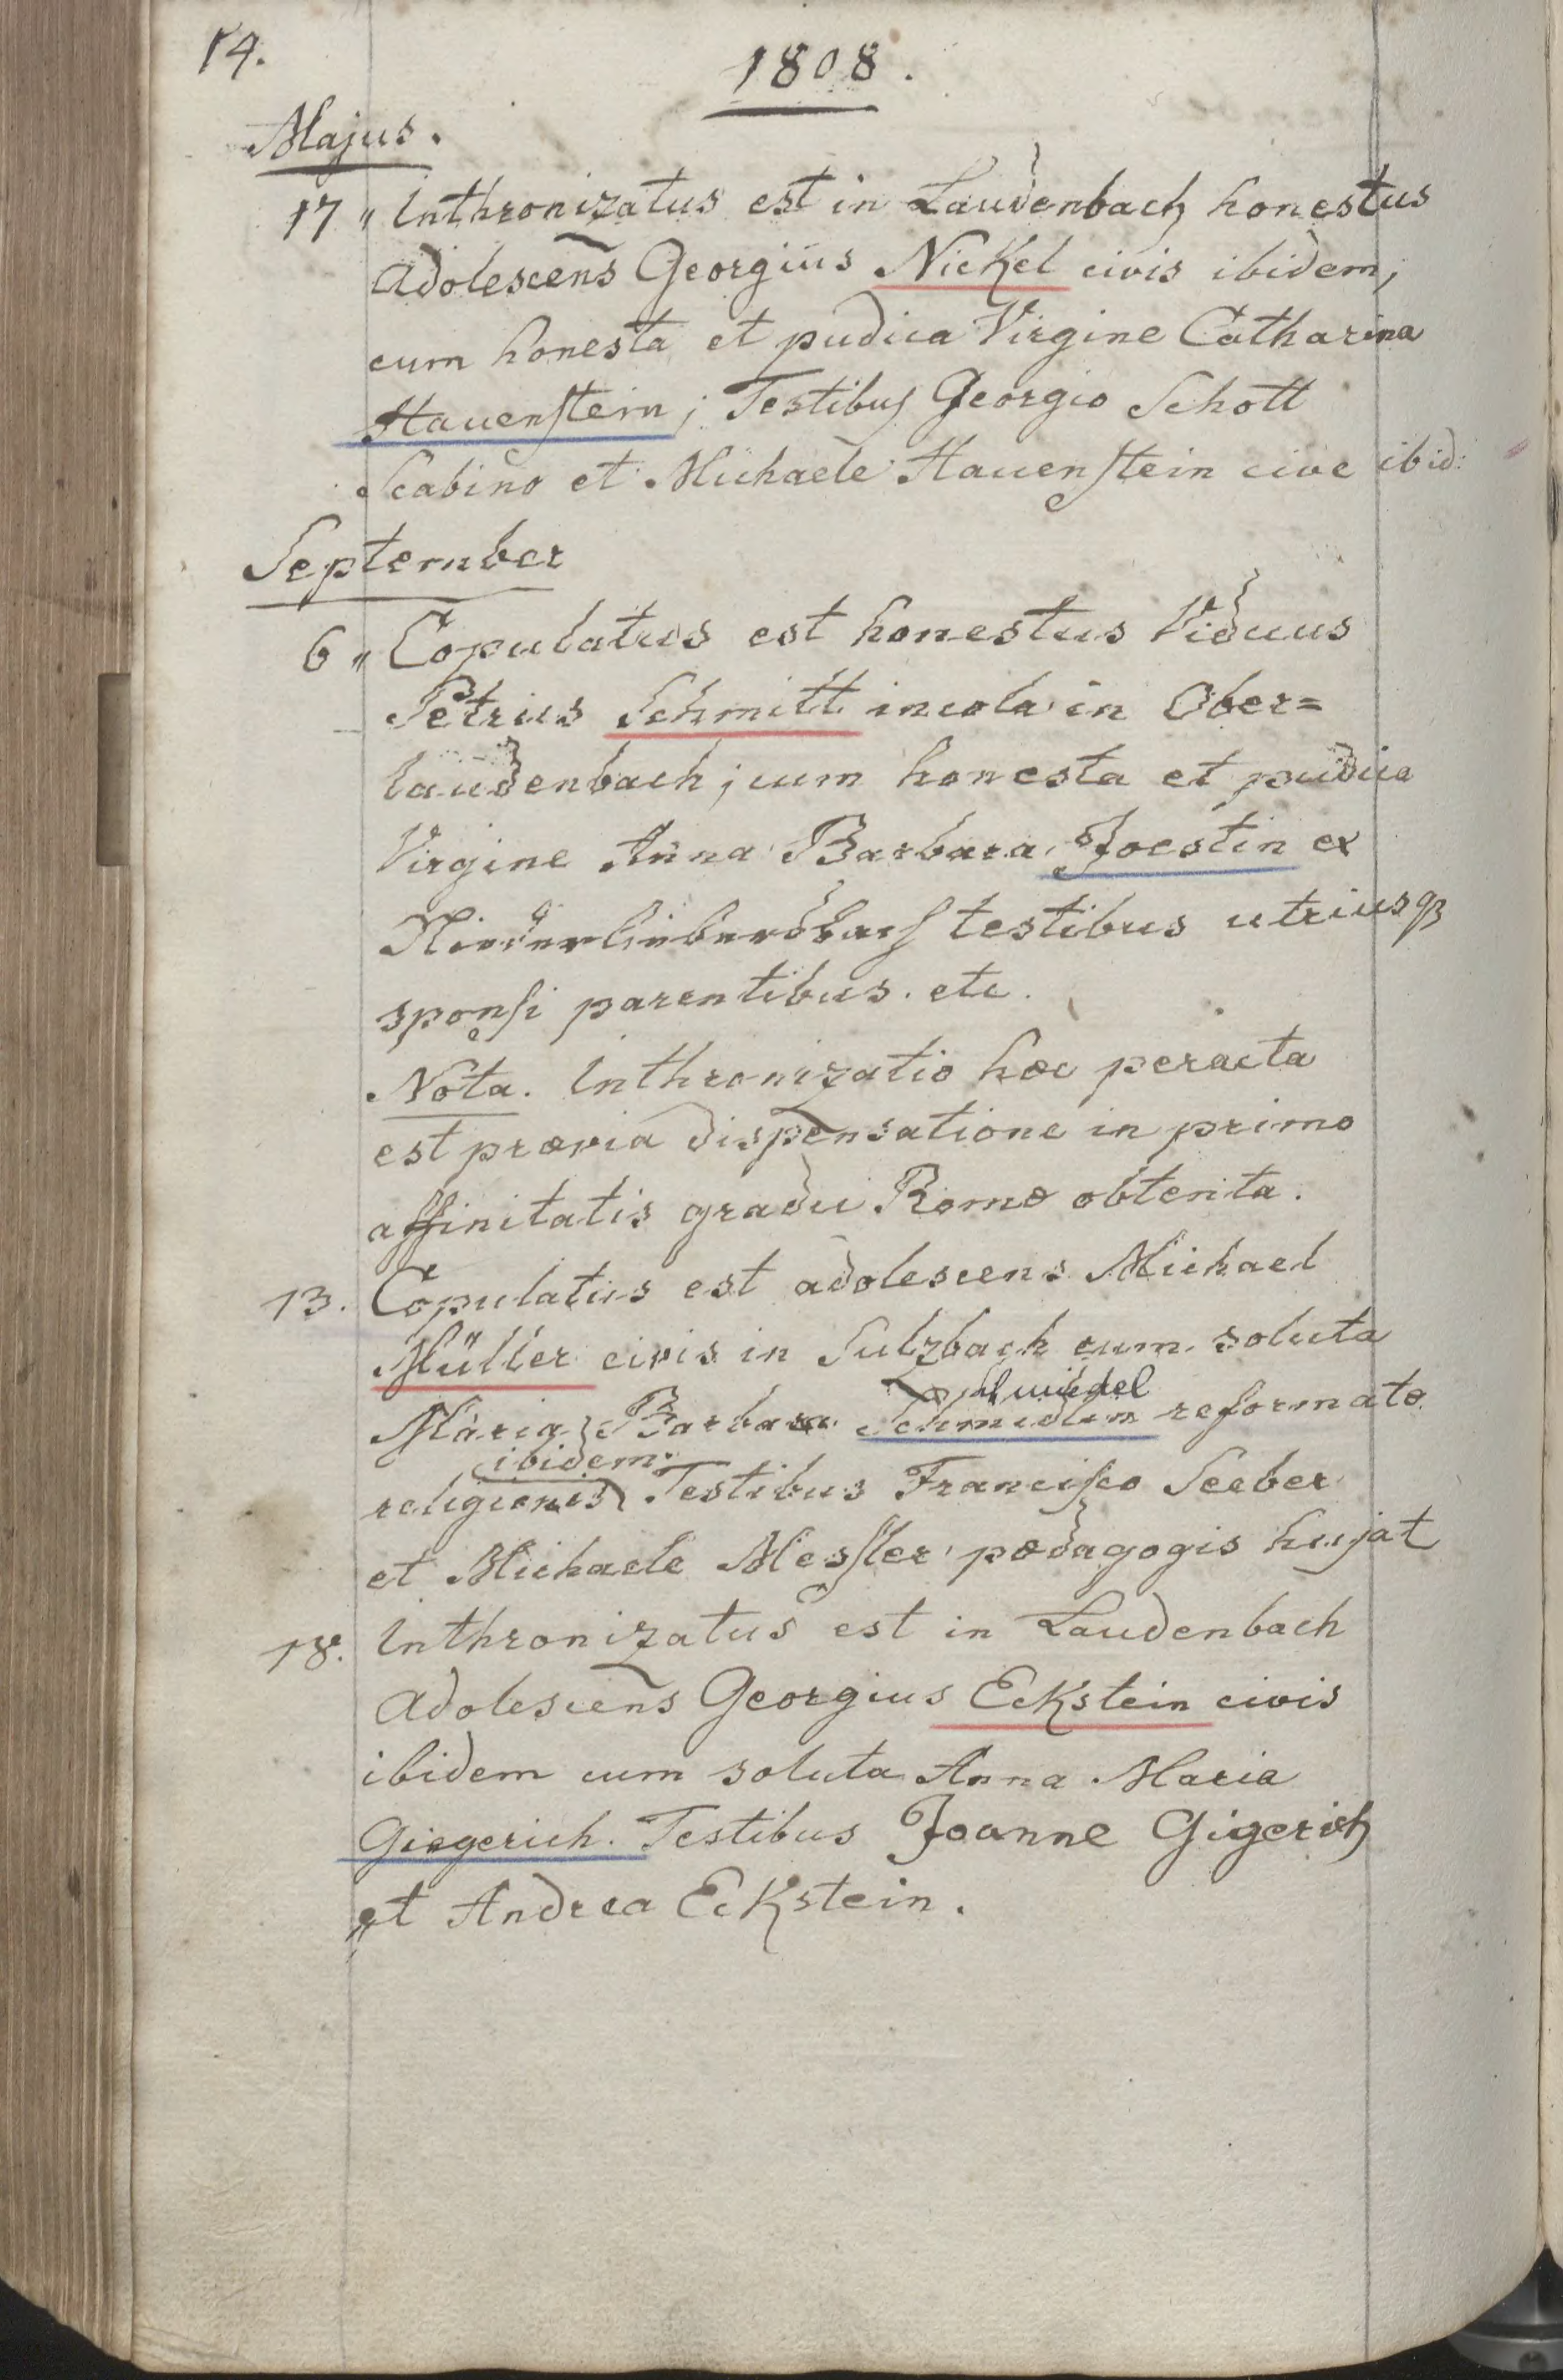 14.
1808.
Majus.
17 „ Inthronizatus est in Laudenbach honestus
adolescens Georgius Nickel civis ibidem,
cum honesta et pudica Virgine Catharina
Hauenſtein; Testibuſ Georgio Schott
Scabino et Michaele Hauenſtein cive ibid:
September
6 „ Copulatus est honestus Viduus
Petrus Schmitt incola in Ober=
laudenbach; cum honesta et pudica
Virgine Anna Barbara Joestin ex
Niederliebersbach testibus utriusq3
sponſi parentibus. etc.
Nota. Inthronizatio hæc peracta
est prævia dispensatione in primo
affinitatis gradu Romæ obtenta.
13. Copulatus est adolescens Michael
Müller civis in Sulzbach cum soluta
Maria Barbara Schmidtin reformatæ
ibidem.
religionis Testibus Franciſco Seeber
et Michaele Mesſler pædagogis hujat
18. Inthronizatus est in Laudenbach
adolescens Georgius Eckstein civis
ibidem cum soluta Anna Maria
Giegerich. Testibus Joanne Gigerich
et Andrea Eckstein.